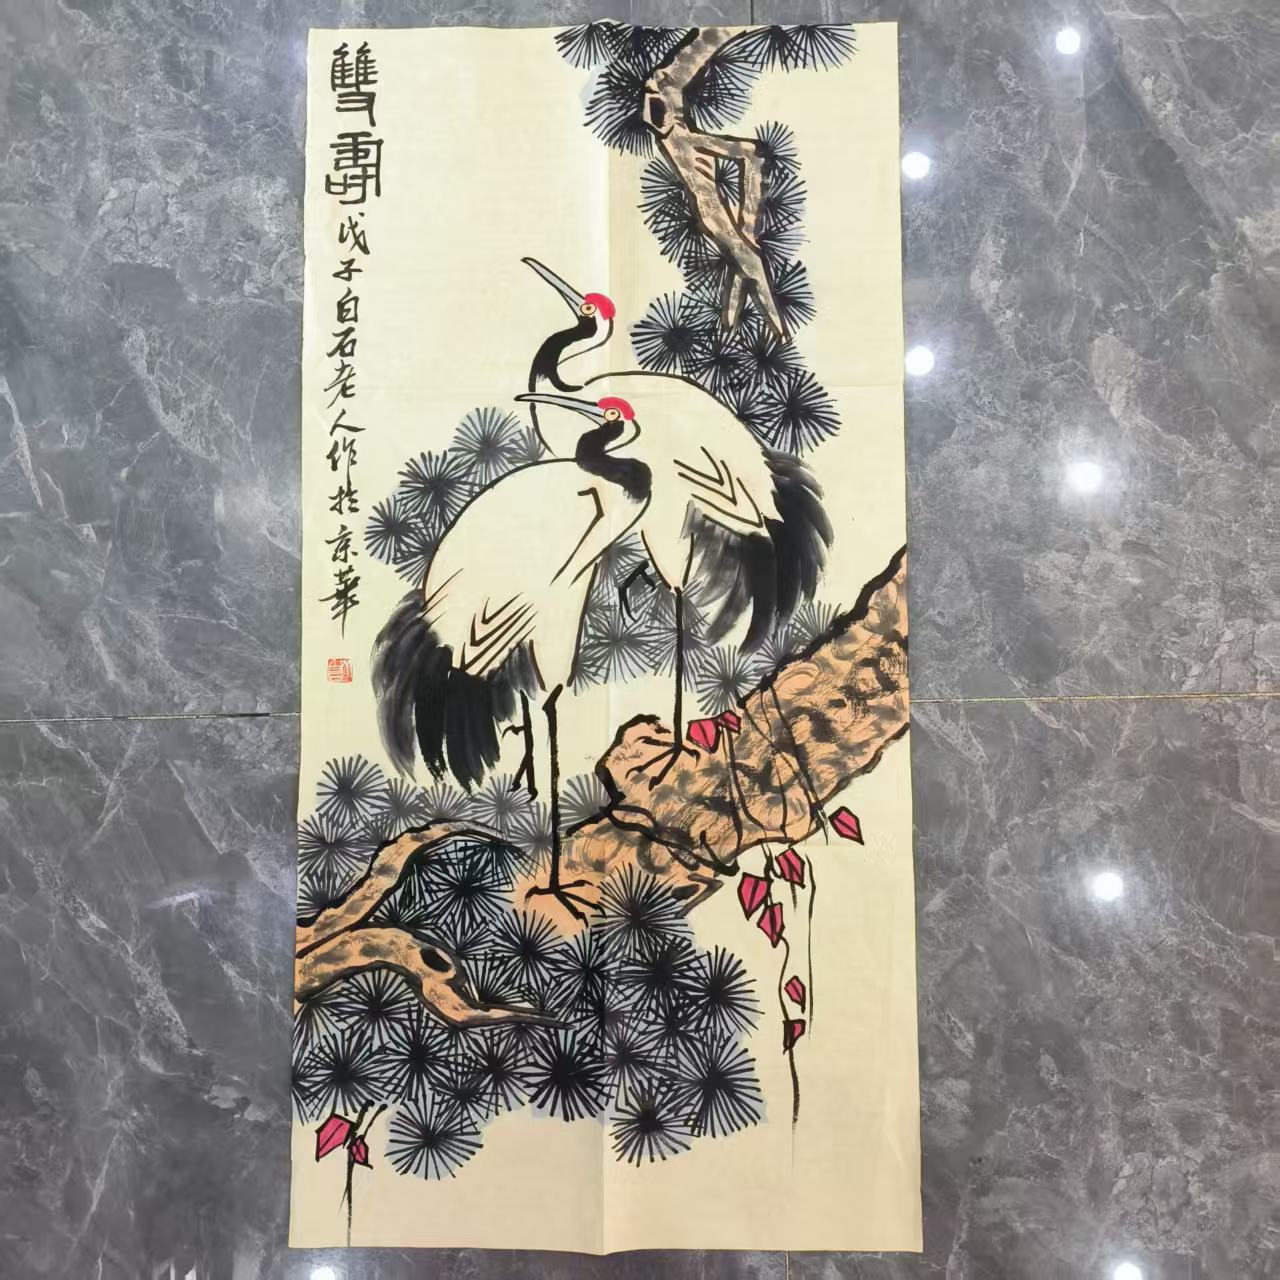 雙壽
戊子白石老人作於京華